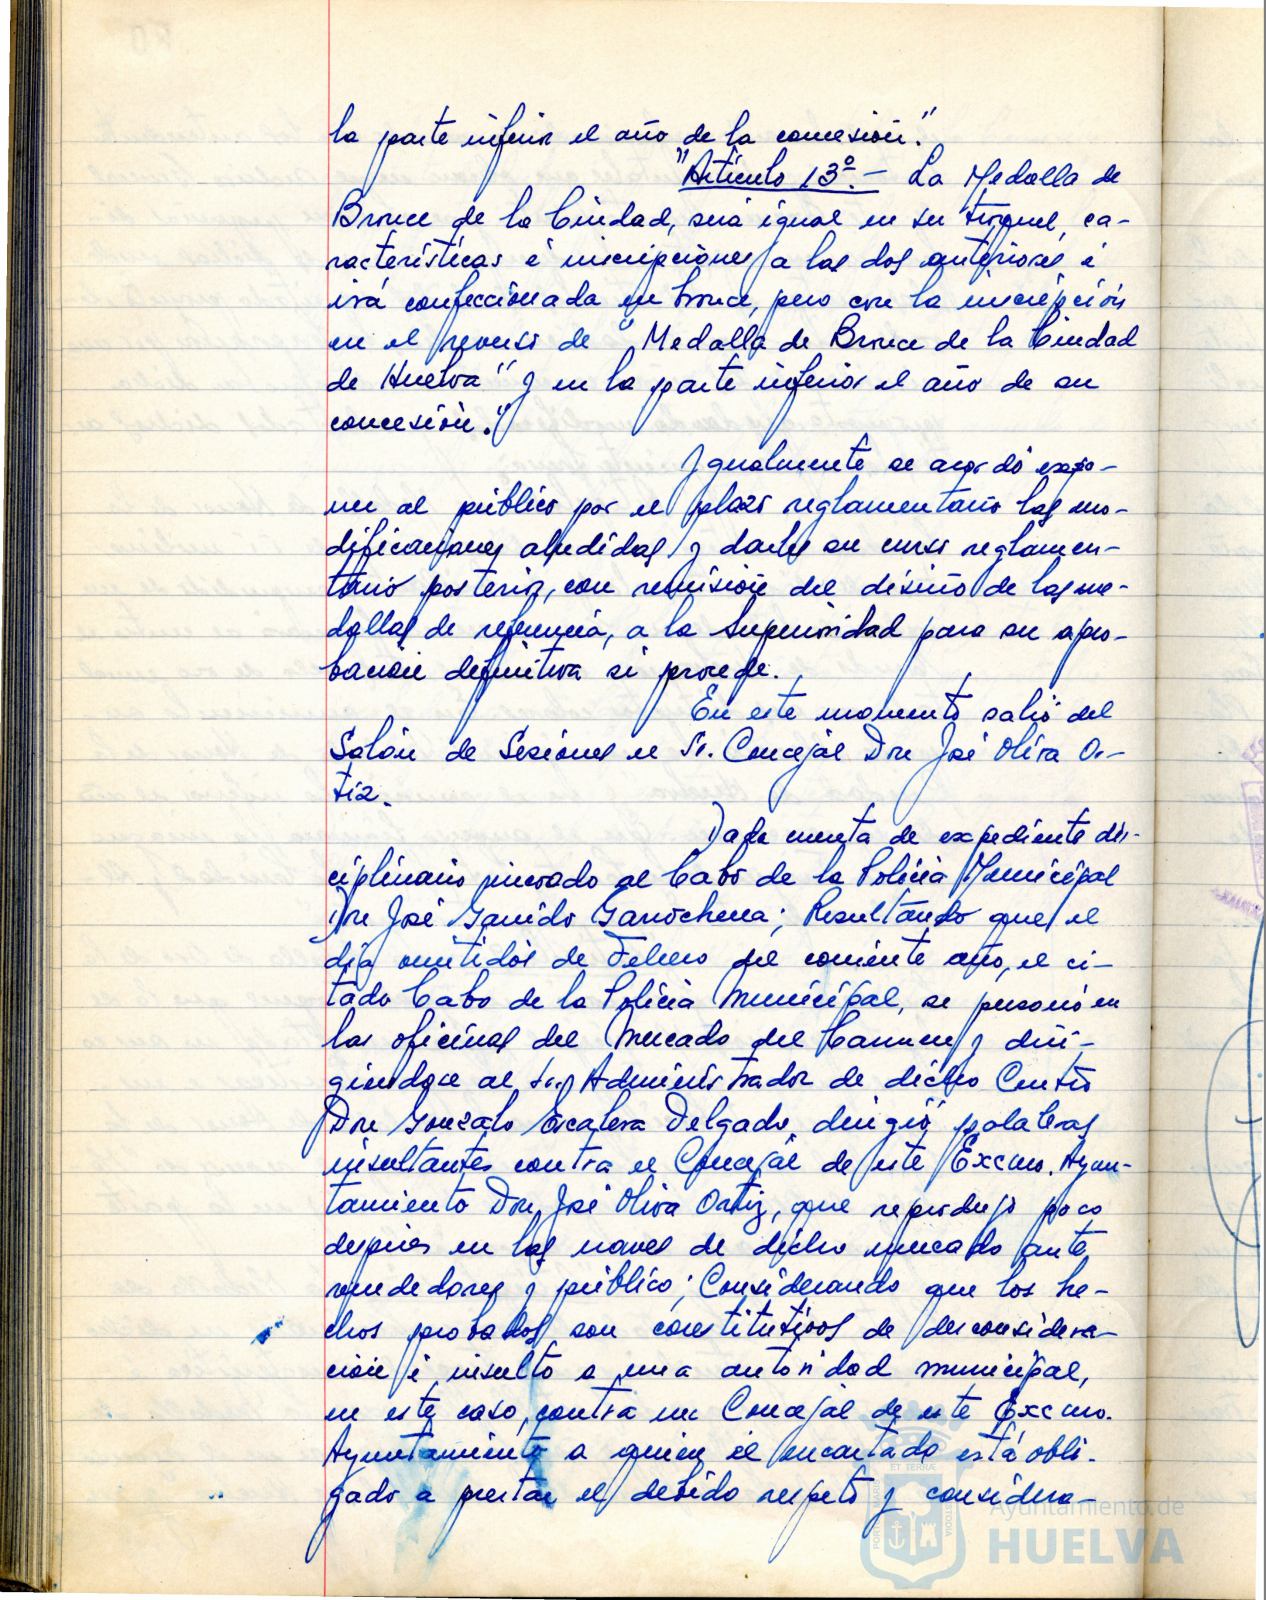 la parte inferior el año de la concesión."
"Artículo 13º.- La Medalla de
Bronce de la Ciudad, será igual en su troquel, ca-
racterísticas é inscripciones a las dos anteriores é
irá confeccionada en bronce, pero con la inscripción
en el reverso de "Medalla de Bronce de la Ciudad
de Huelva" y en la parte inferior el año de su
concesión."
Igualmente se acordó expo-
ner al público por el plazo reglamentario las mo-
dificaciones aludidas y darles su curso reglamen-
tario posterior, con remisión del diseño de las me-
dallas de referencia, a la Superioridad para su apro-
bación definitiva si procede.
En este momento salió del
Salón de Sesiones el Sr. Concejal Don José Oliva Or-
tiz.
Dada cuenta de expediente dis-
ciplinario incoado al Cabo de la Policía Municipal
Don José Garrido Garrochena; Resultando que el
día veintidós de Febrero del corriente año, el ci-
tado Cabo de la Policía Municipal, se personó en
las oficinas del Mercado del Carmen y diri-
giendose al Sr. Administrador de dicho Centro
Don Gonzalo Escalera Delgado, dirigió palabras
insultantes contra el Concejal de este Excmo. Ayun-
tamiento Don José Oliva Ortiz, que reprodujo poco
después en las naves de dicho mercado ante
vendedores y público; Considerando que los he-
chos probados son constitutivos de desconsidera-
ción é insulto a una autoridad municipal,
en este caso, contra un Concejal de este Excmo.
Ayuntamiento a quien el encartado está obli-
gado a prestar el debido respeto y considera-
Ayuntamiento de
HUELVA